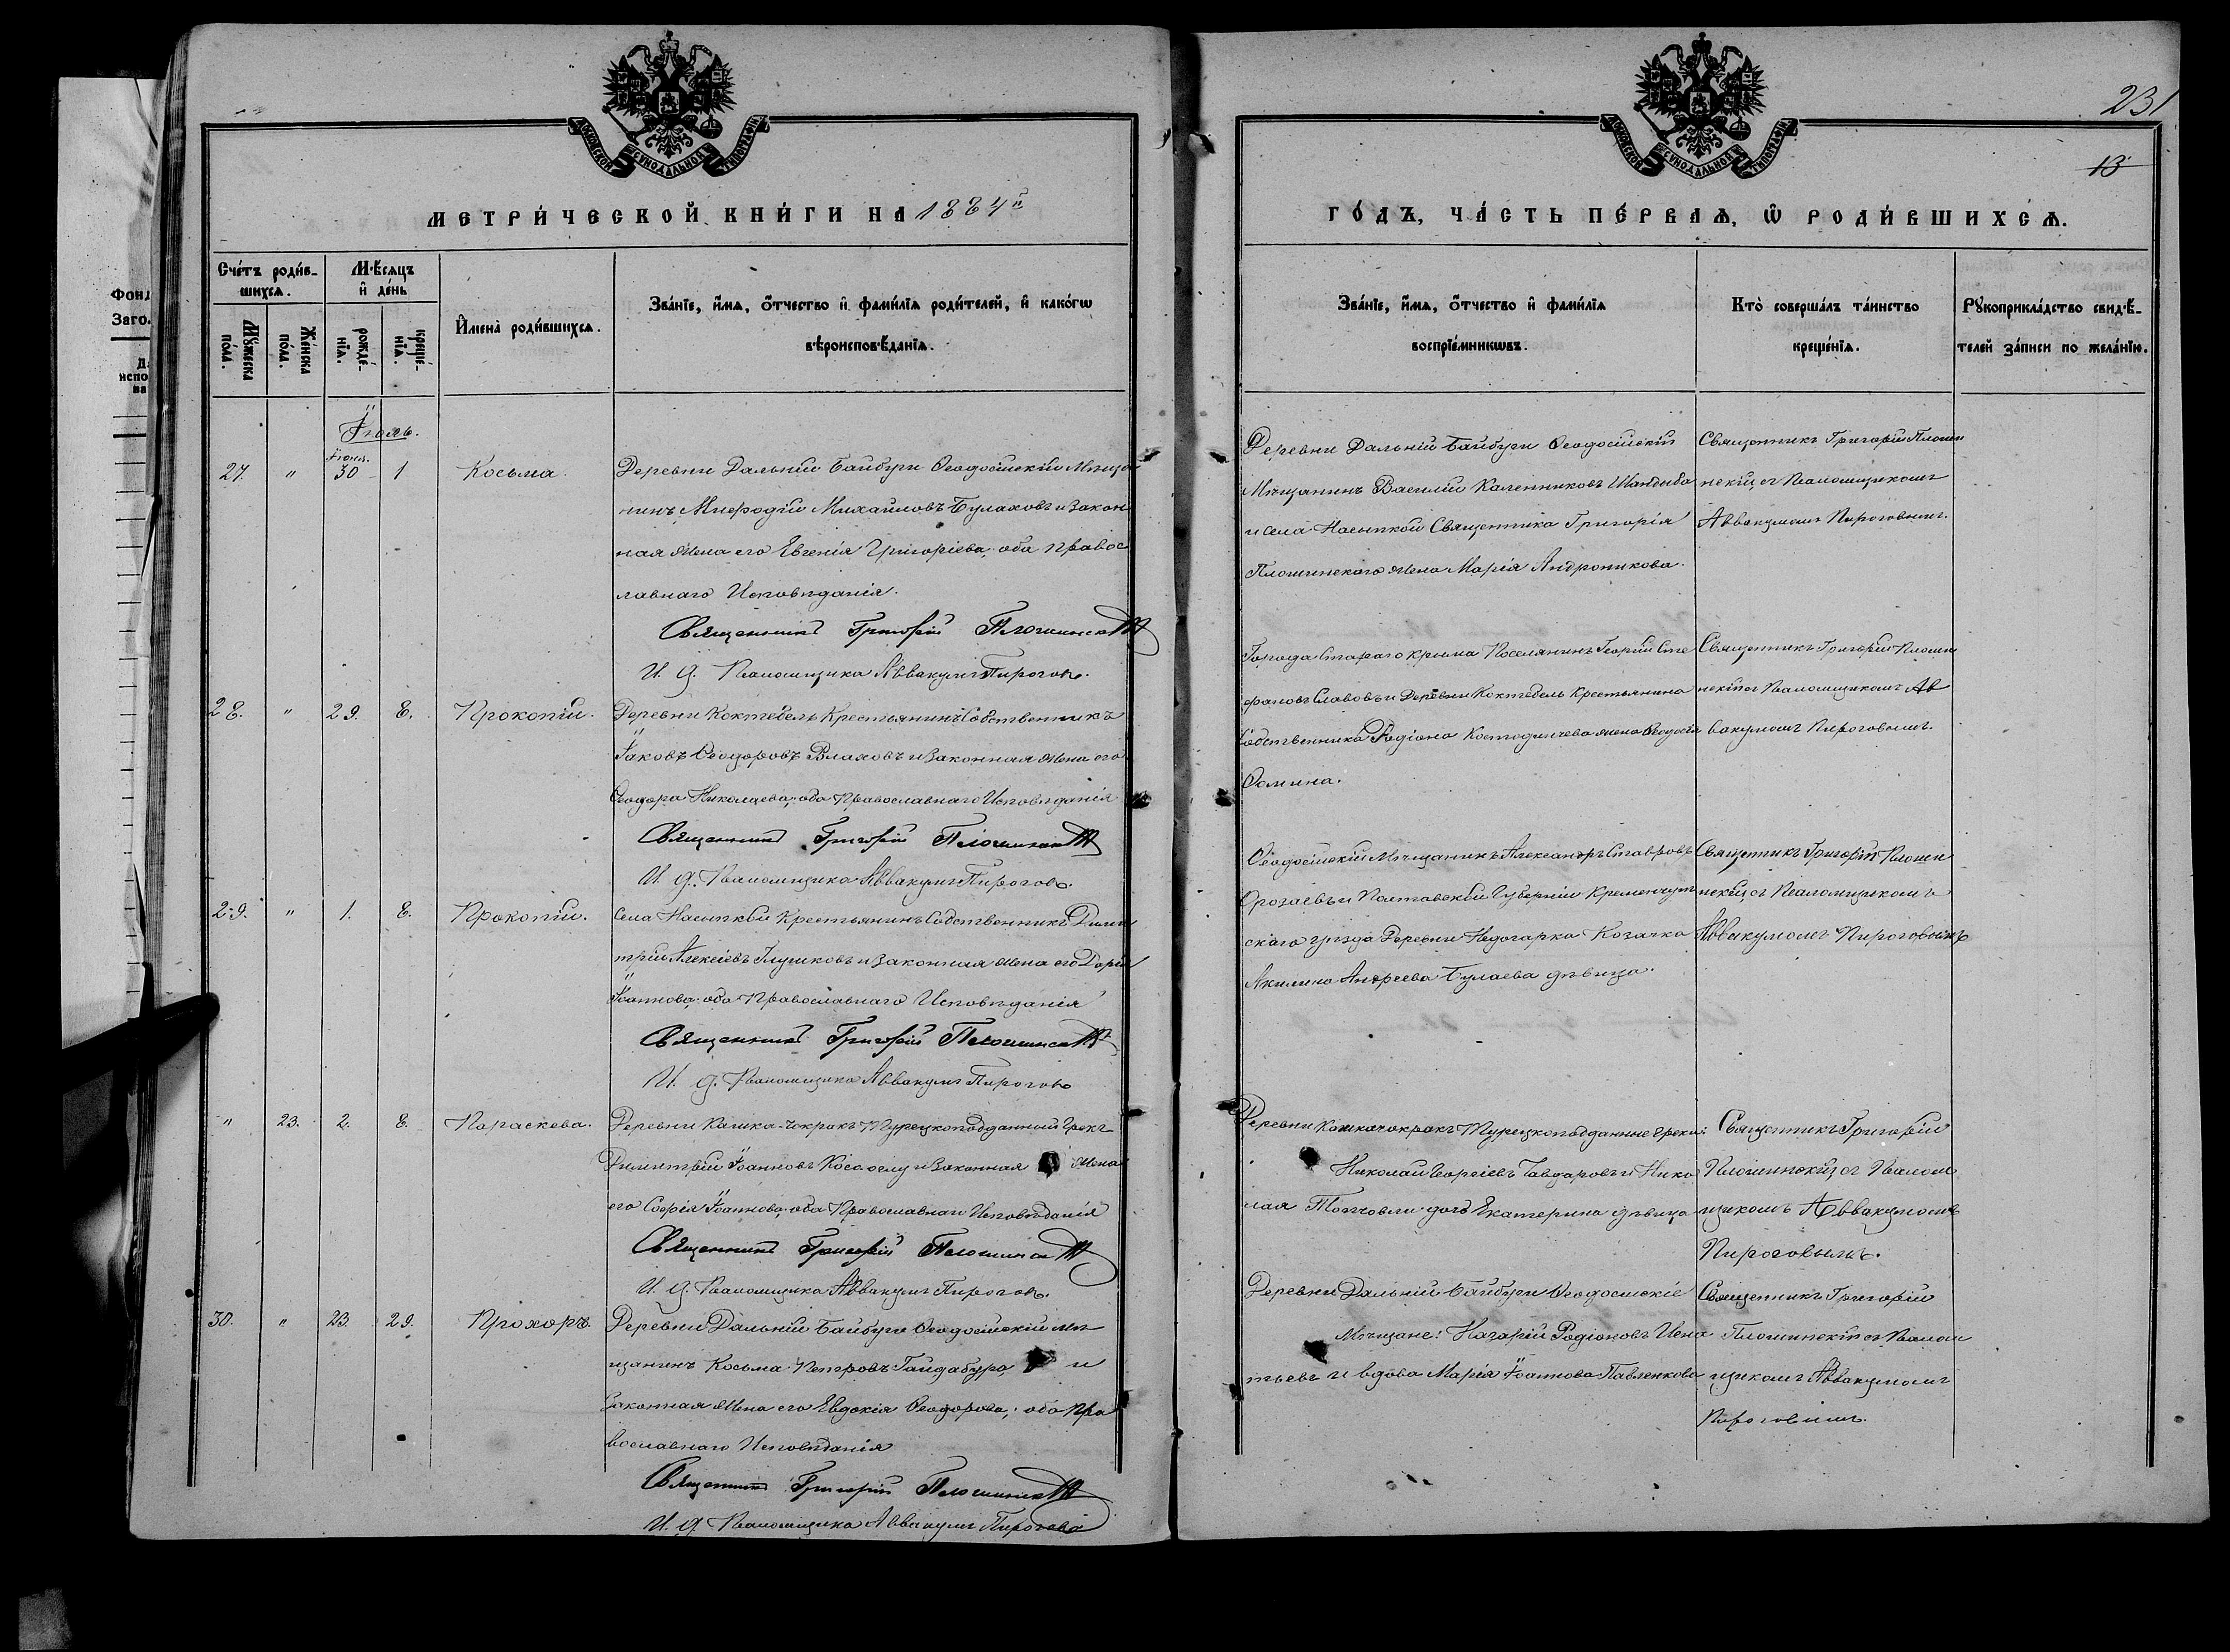 231
13
МОСКОВСКОЙ СѴНОДАЛЬНОЙ ТИПОГРАФІИ
МЕТРИ́ЧЕСКОЙ КНИ́ГИ НА 1884й
Сче́тъ роди́в-
шихсѧ.
Мꙋ́жеска
по́ла.
Же́нска
по́ла.
М·ѣ́сѧцъ
и҆ де́нь
рожде́-
нїѧ.
креще́-
нїѧ.
И҆мена̀ роди́вшихсѧ.
Зва́нїе, и҆́мѧ, ѻ҆́тчество и҆ фами́лїѧ роди́телей, и҆ како́гѡ
в·ѣроиспов·ѣ́данїѧ.
Іюль.
Іюня.
27. " 30 1 Косьма.
Деревни Дальній Байбуги Ѳеодосійскій Мѣща
нинъ Меѳодій Михайловъ Булаховъ и закон
ная жена его Евгенія Григоріева, оба правос
лавнаго Исповѣданія.
Священникъ Григорій Плошинскій
И. д. Псаломщика Аввакумъ Пироговъ.
28. " 29. 8. Прокопій.
Деревни Коктебель Крестьянинъ Собственникъ
Іаковъ Ѳеодоровъ Влаховъ и законная жена его
Ѳеодора Николаева, оба Православнаго Исповѣданія
Священникъ Григорій Плошинскій
И. д. Псаломщика Аввакумъ Пироговъ.
29. " 1. 8. Прокопій.
Села Насыпкой Крестьянинъ Собственникъ Дими
трій Алексіевъ Глушковъ и законная жена его Дарія
Іоаннова, оба Православнаго Исповѣданія
Священникъ Григорій Плошинскій
И. д. Псаломщика Аввакумъ Пироговъ
" 23. 2. 8. Параскева.
Деревни Кашка-Чокракъ Турецкоподданный Грекъ
Димитрій Іоанновъ и законная жена
его Софія Іоаннова, оба Православнаго Исповѣданія
Священникъ Григорій Плошинскій
И. д. Псаломщика Аввакумъ Пироговъ.
30. " 23. 29. Прохоръ.
Деревни Дальній Байбуги Ѳеодосійскій мѣ
щанинъ Косьма Петровъ Гайдабура, и
законная жена его Евдокія Ѳеодорова; оба Пра
вославнаго Исповѣданія
Священникъ Григорій Плошинскій
И. д. Псаломщика Аввакумъ Пироговъ
МОСКОВСКОЙ СѴНОДАЛЬНОЙ ТИПОГРАФІИ
ГО́ДЪ, ЧА́СТЬ ПЕ́РВАѦ, Ѡ҆ РОДИ́ВШИХСѦ.
Зва́нїе, и҆́мѧ, ѻ҆́тчество и҆ фами́лїѧ
воспрїе́мникѡвъ.
Кто̀ соверша́лъ та́инство
креще́нїѧ.
Рꙋкоприкла́дство свид·ѣ́-
телей за́писи по жела́нїю.
Деревни Дальній Байбуги Ѳеодосійскій
Мѣщанинъ Василій Каленниковъ Шандыба
и села Насыпкой Священника Григорія
Плошинскаго жена Марія Андроникова.
Священникъ Григорій Плошин
скій, съ Псаломщикомъ
Аввакумомъ Пироговымъ.
Города Стараго Крыма Поселянинъ Георгій Сте
фановъ Славовъ и Деревни Коктебель Крестьянина
Собственника Родіона жена Ѳеодосія
Священникъ Григорій Плошин
скій съ Псаломщикомъ Ав
вакумомъ Пироговымъ.
Ѳеодосійскій Мѣщанинъ Александръ Ставровъ
и Полтавской Губерніи Кременчуг
скаго уѣзда Деревни Недогарка Козачка
Акилина Андреева Булаева дѣвица.
Священникъ Григорій Плошин
скій, съ Псаломщикомъ
Аввакумомъ Пироговымъ
Деревни Кашкачокракъ Турецкоподданные Греки:
Николай Георгіевъ Чавдаровъ и Нико
лая дочь Екатерина дѣвица
Священникъ Григорій
Плошинскій, съ Псалом
щикомъ Аввакумомъ
Пироговымъ.
Деревни Дальній Байбуги Ѳеодосійскіе
Мѣщане: Назарій Родіоновъ Игна
тьевъ и вдова Марія Іоаннова Павленкова
Священникъ Григорій
Плошинскій съ Псалом
щикомъ Аввакумомъ
Пироговымъ.